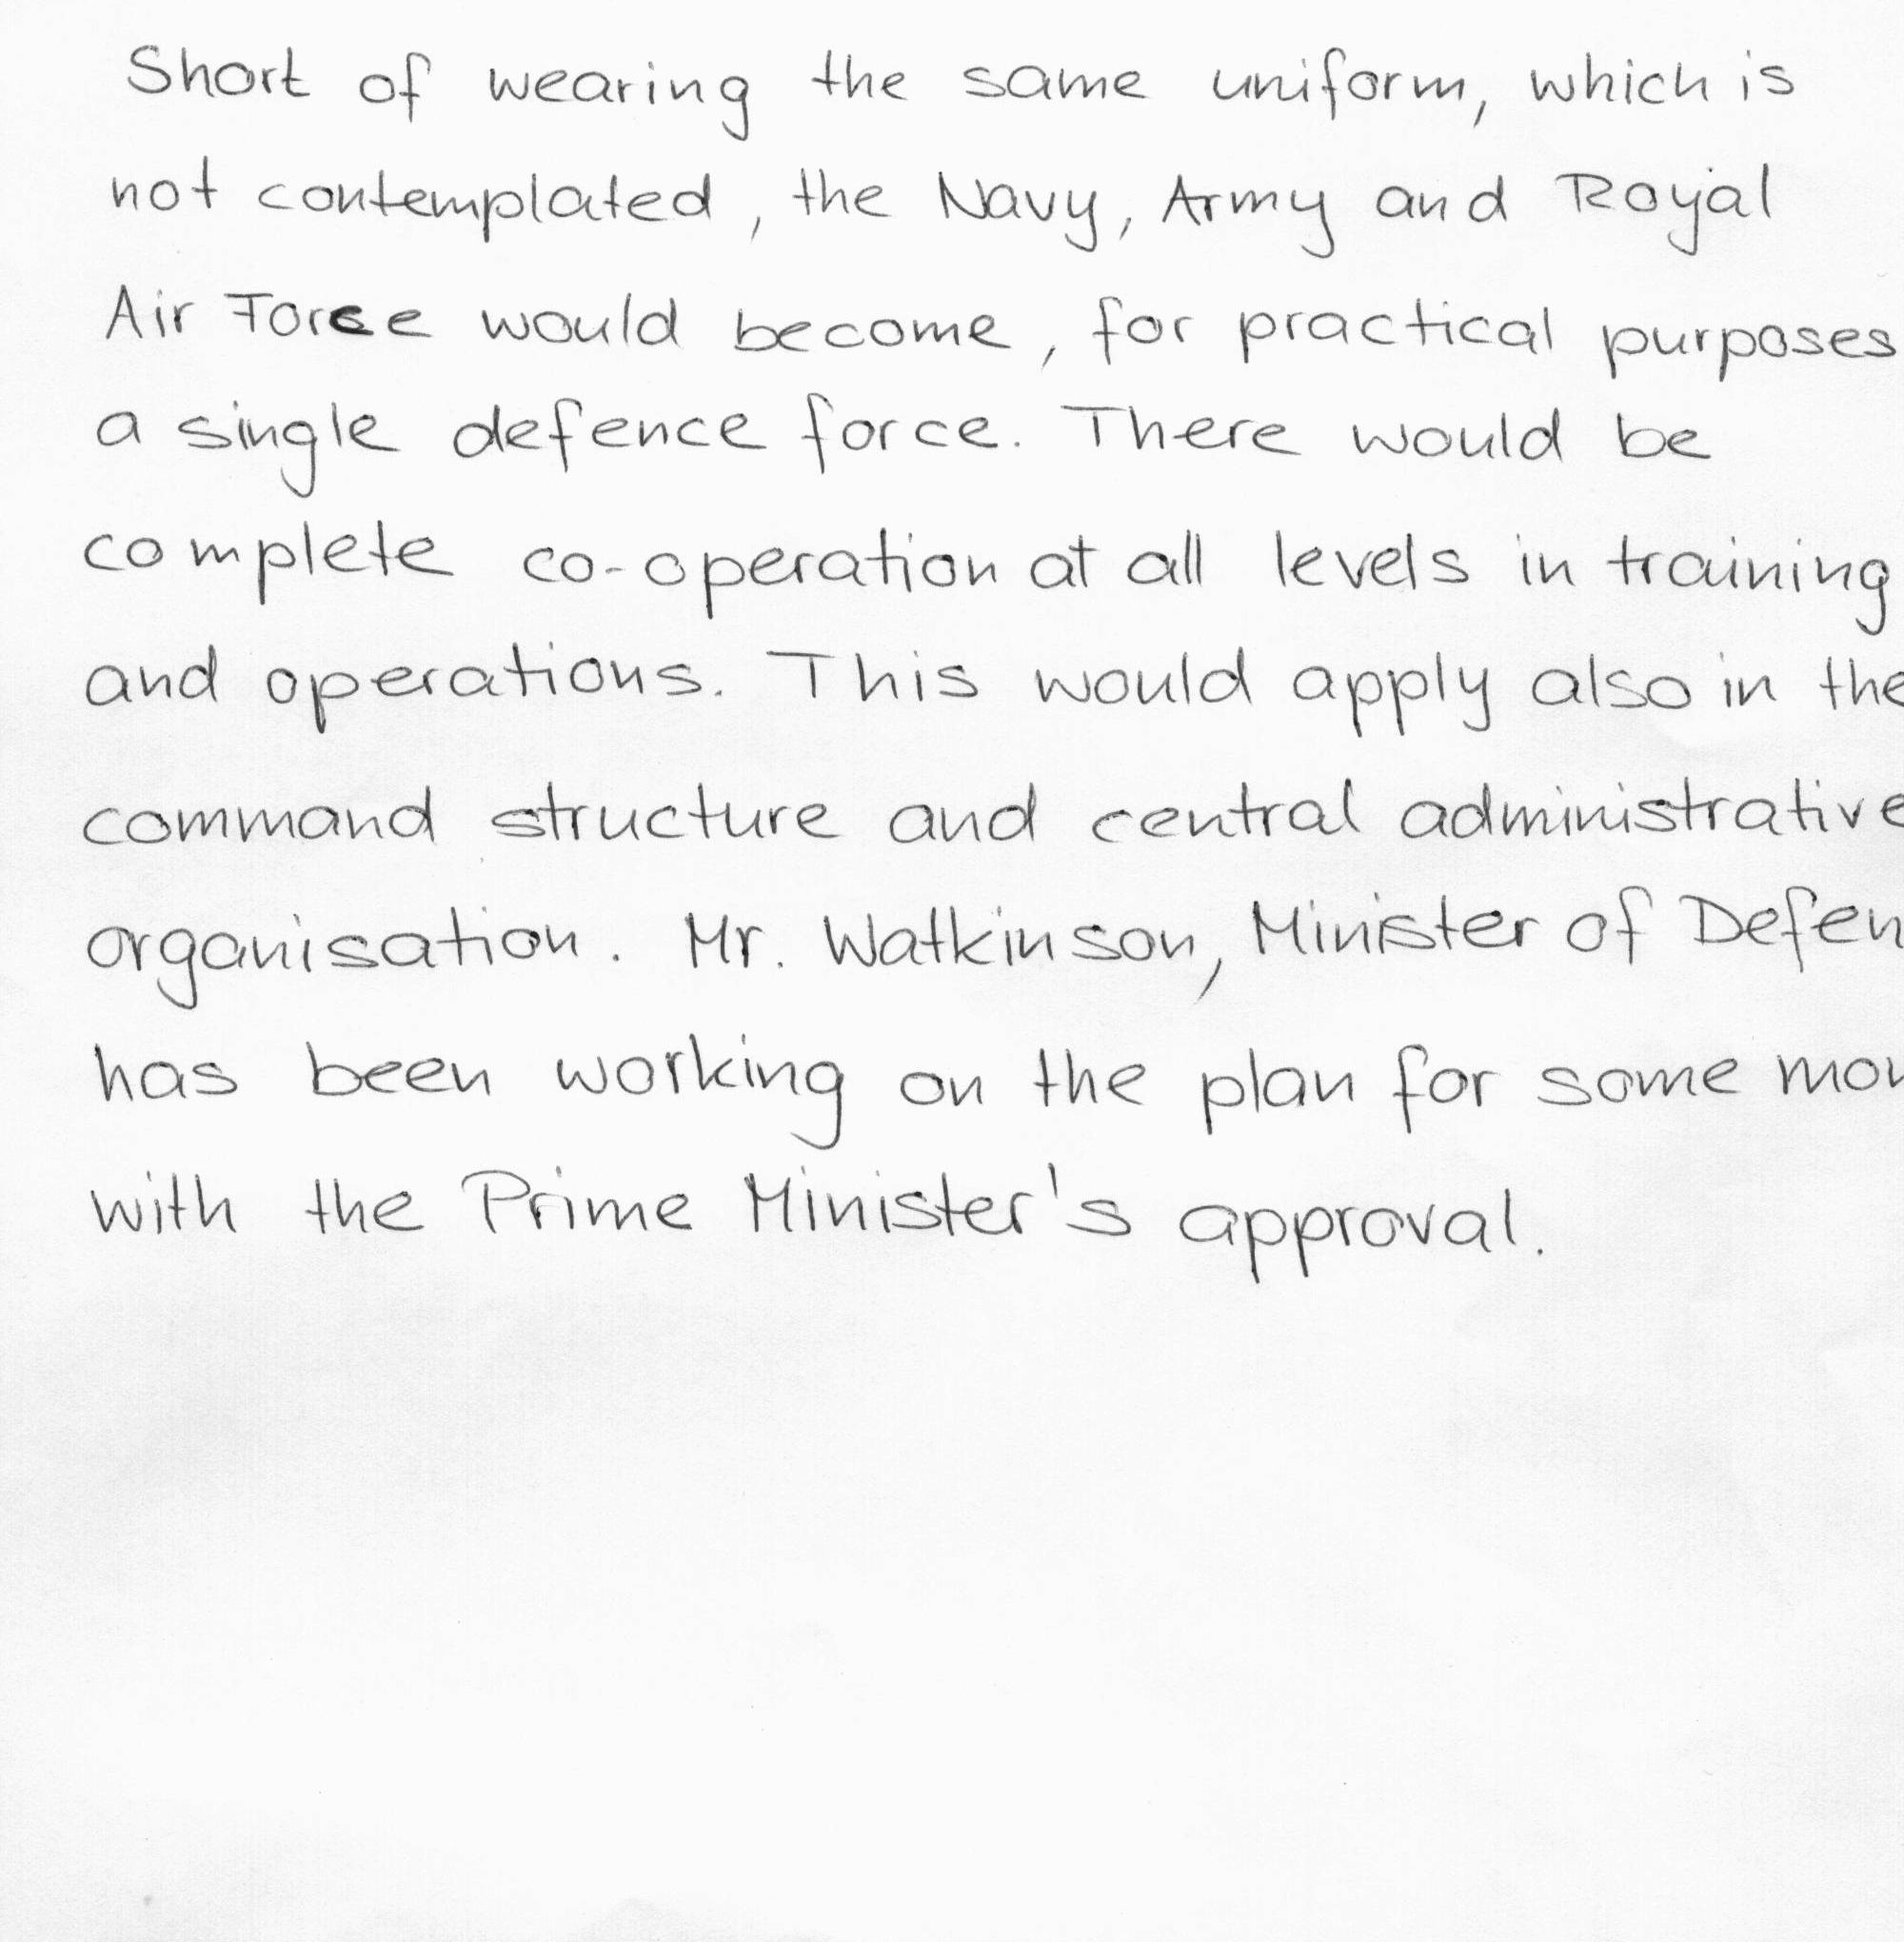 Short of wearing the same uniform, which is
not contemplated, the Navy, Army and Royal
Air Force would become, for practical purposes
a single defence force. There would be
complete co-operation at all levels in training
and operations. This would apply also in the
command structure and central administrative
organisation. Mr. Watkinson, Minister of Defen
has been working on the plan for some mon
with the Prime Minister's approval.